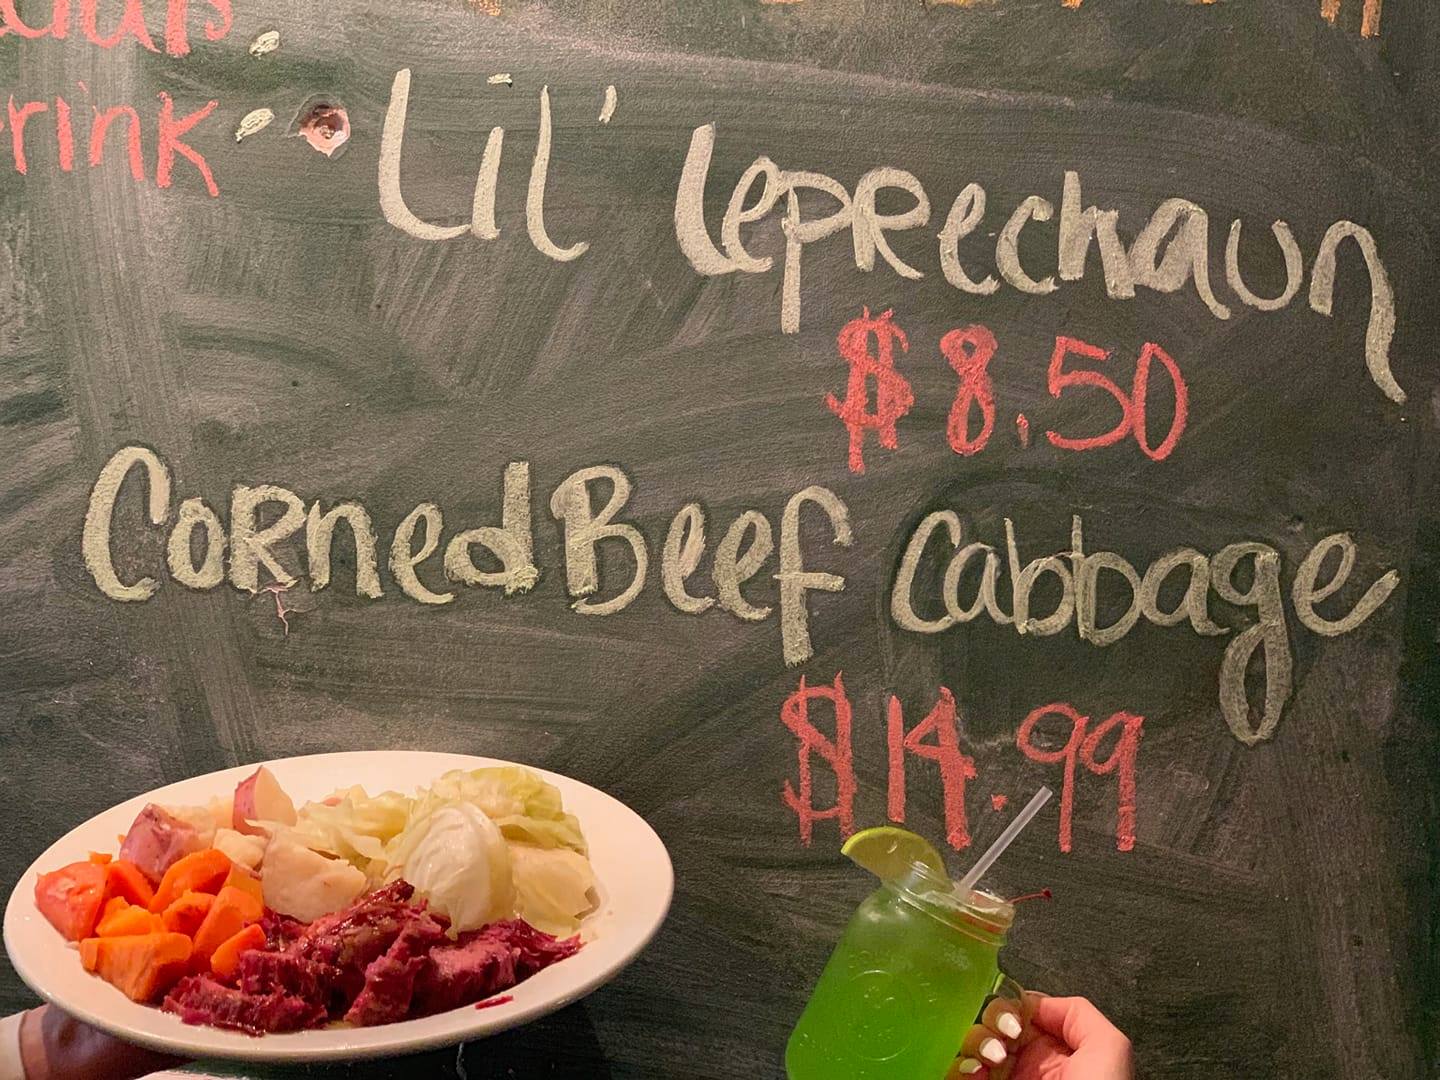 Lil' Leprechaun
$8.50
Corned Beef Cabbage
$14.99